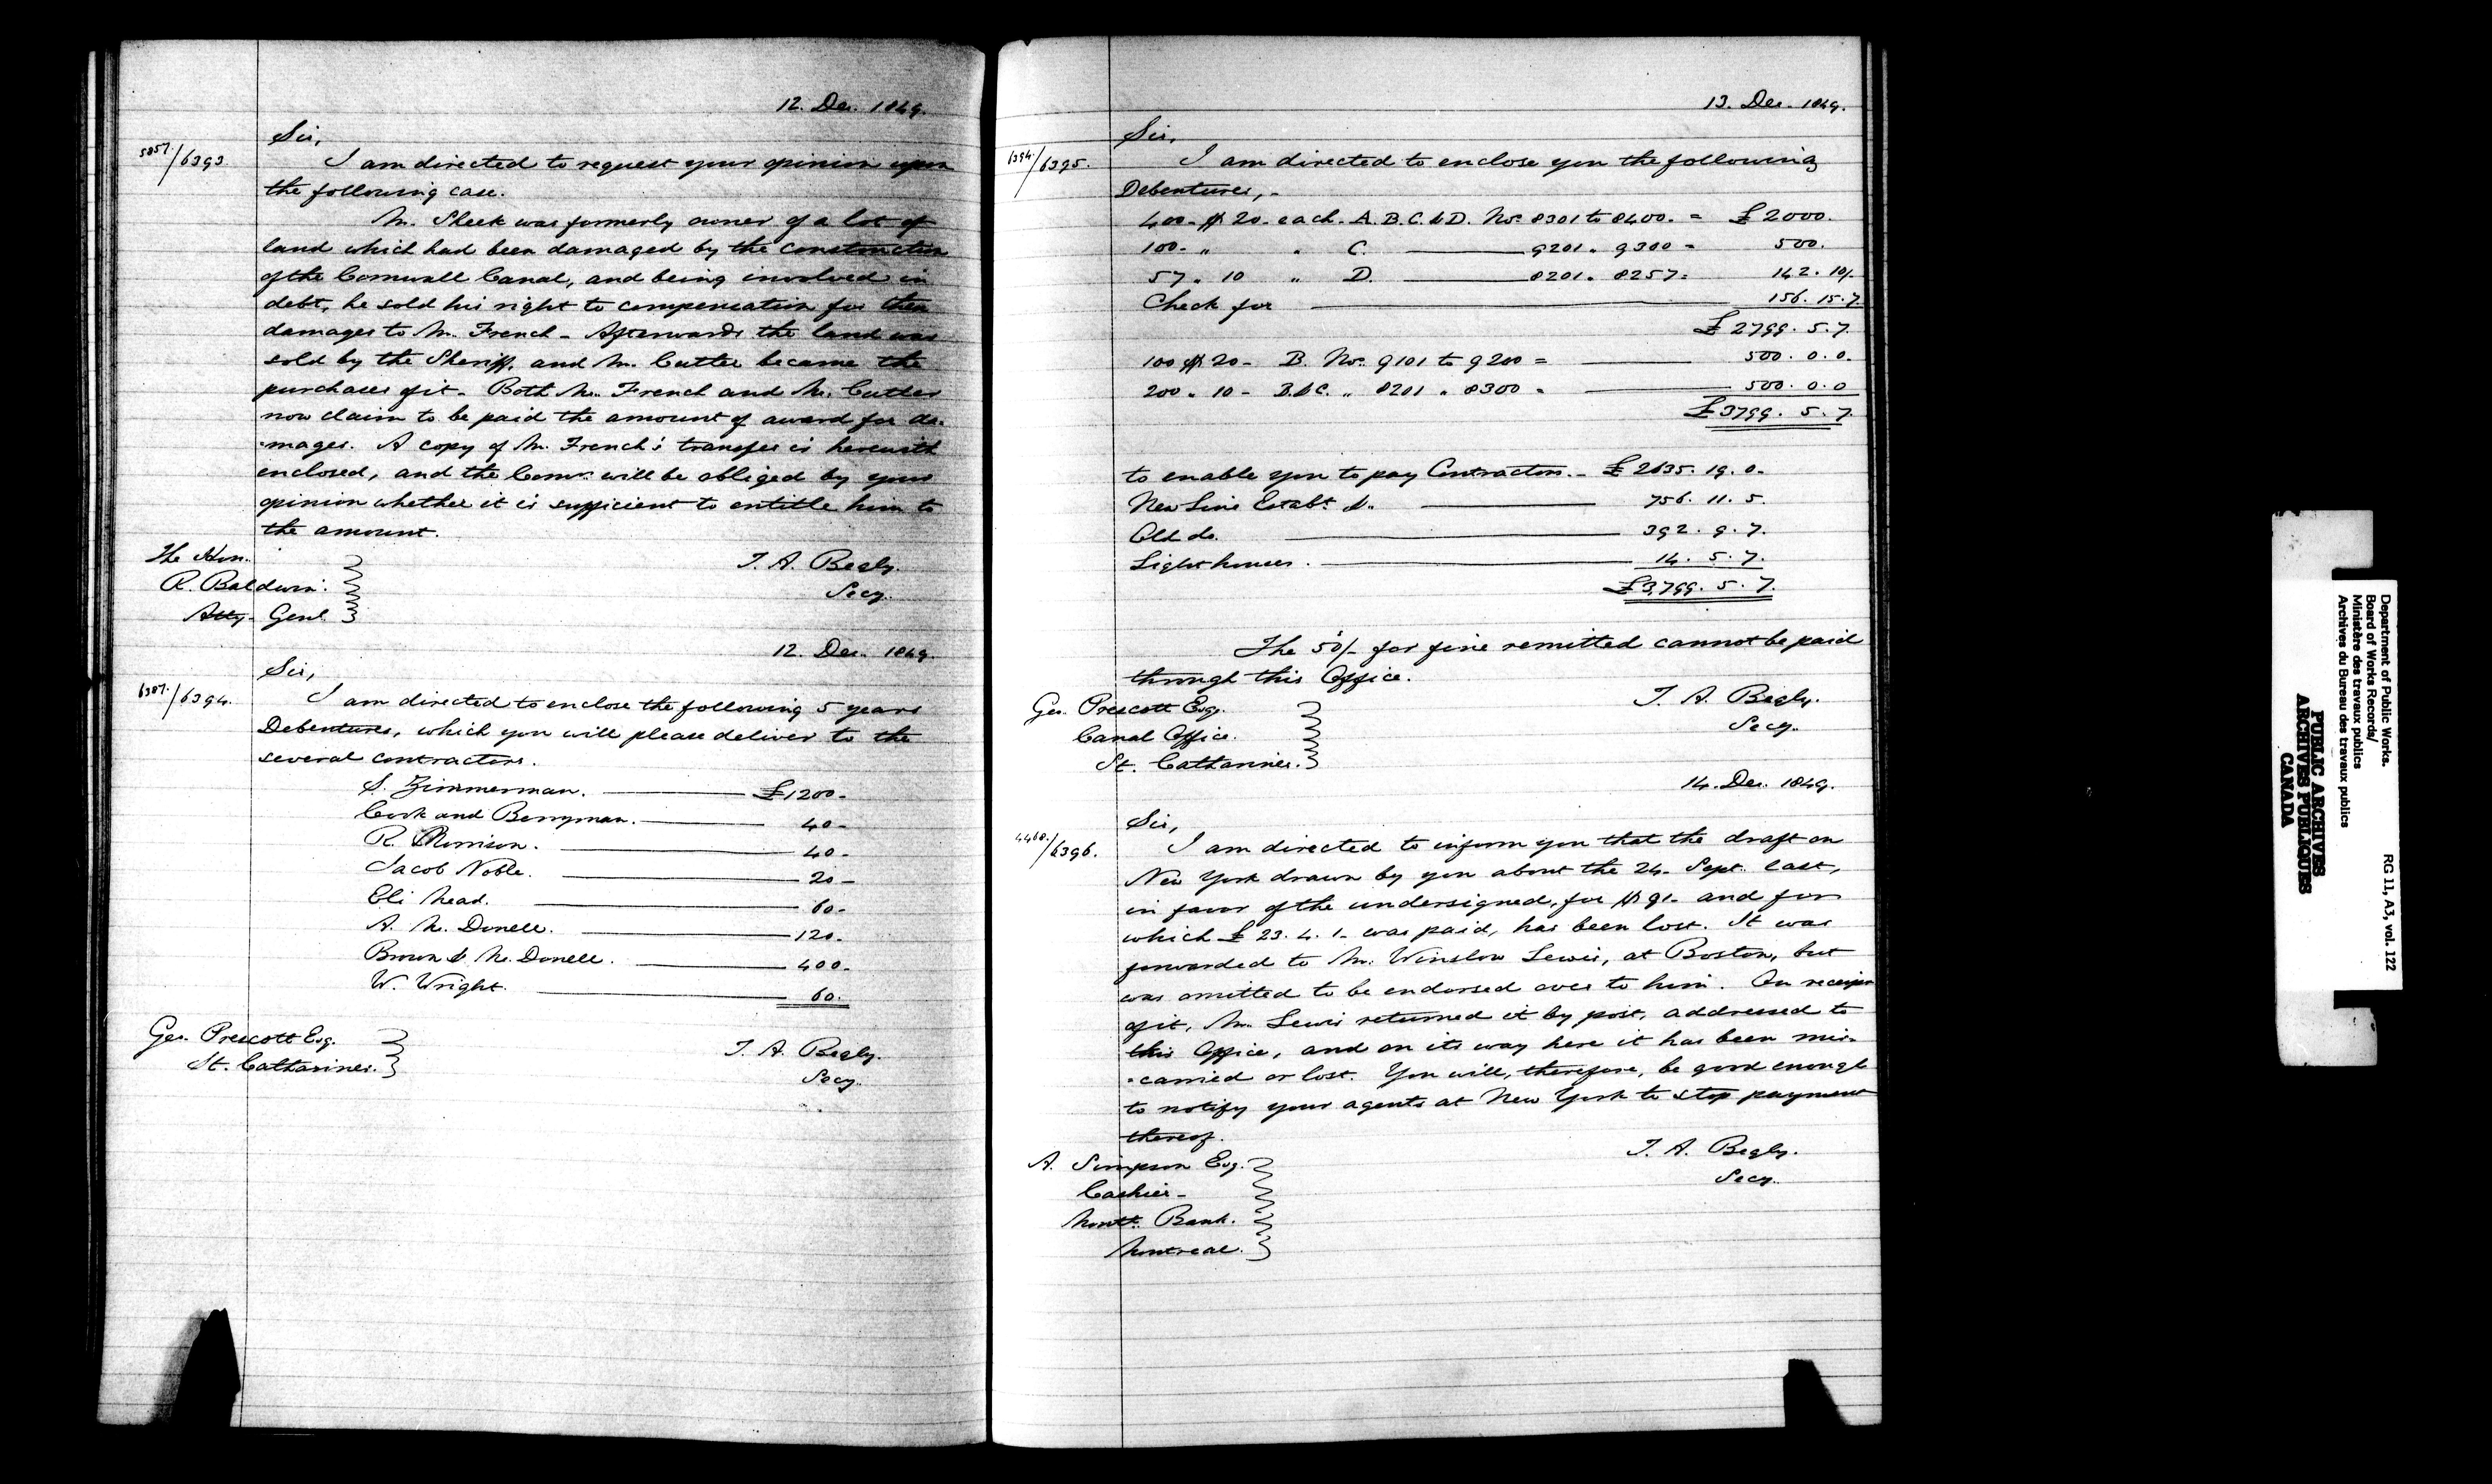 12. Dec. 1849.
Sir,
5857./6393.
I am directed to request your opinion upon
the following case.
Mr. Sheek was formerly owner of a lot of
land which had been damaged by the construction
of the Cornwall Canal, and being involved in
debt, he sold his right to compensation for these
damages to Mr. French - Afterwards the land was
sold by the Sheriff, and Mr. Cutler became the
purchaser of it. Both Mr. French and Mr. Cutler
now claim to be paid the amount of award for da-
-mages. A copy of Mr. French's transfer is herewith
enclosed, and the Comrs. will be obliged by your
opinion whether it is sufficient to entitle him to
the amount.
The Hon.
R. Baldwin.
Atty. Genl
T. A. Begly.
Secy.
12. Dec. 1849.
Sir,
6387./6394.
I am directed to enclose the following 5 years
Debentures, which you will please deliver to the
several contractors.
S. Zimmerman. £1200-
Cook and Berryman. 40-
R. Morrison. 40-
Jacob Noble. 20-
Eli Mead. 60-
A. Mc. Donell. 120-
Brown & Mc. Donell. 400-
W. Wright. 60.
Geo. Prescott Esq.
St. Catharines.
T. A. Begly.
Secy.
13. Dec. 1849.
Sir,
6394./6395.
I am directed to enclose you the following
Debentures, -
400- $ 20- each- A. B. C. & D. Nos. 8301 to 8400. = £ 2000.
100- " " C. 9201 " 9300 = 500.
57 " 10 " D. 8201 " 8257 = 142. 10/.
Check for 156. 15. 7.
£ 2799. 5. 7.
100 $ 20- B. Nos. 9101 to 9200 = 500. 0. 0.
200 " 10- B. & C. " 8201 " 8300 = 500. 0. 0
£ 3799. 5. 7.
to enable you to pay Contractors. - £ 2635. 19. 0.
New Line Estabt. &c. 756. 11. 5.
Old do. 392. 9. 7.
Light houses. 14. 5. 7.
£3,799. 5. 7.
The 50/- for fine remitted cannot be paid
through this Office.
Geo. Prescott Esq.
Canal Office.
St. Catharines.
T. A. Begly.
Secy.
14. Dec. 1849.
Sir,
4468./6396.
I am directed to inform you that the draft on
New York drawn by you about the 24. Sept. last,
in favor of the undersigned, for $ 91- and for
which £ 23. 4. 1- was paid, has been lost. It was
forwarded to Mr. Winslow Lewis, at Boston, but
was omitted to be endorsed over to him. On receipt
of it, Mr. Lewis returned it by post, addressed to
this Office, and on its way here it has been mis-
-carried or lost. You will, therefore, be good enough
to notify your agents at New York to stop payment
thereof.
A. Simpson Esq.
Cashier-
Montl. Bank.
Montreal.
T. A. Begly.
Secy.
Department of Public Works.
Board of Works Records/
Ministère des travaux publics
Archives du Bureau des travaux publics
RG 11, A3, vol. 122
PUBLIC ARCHIVES
ARCHIVES PUBLIQUES
CANADA